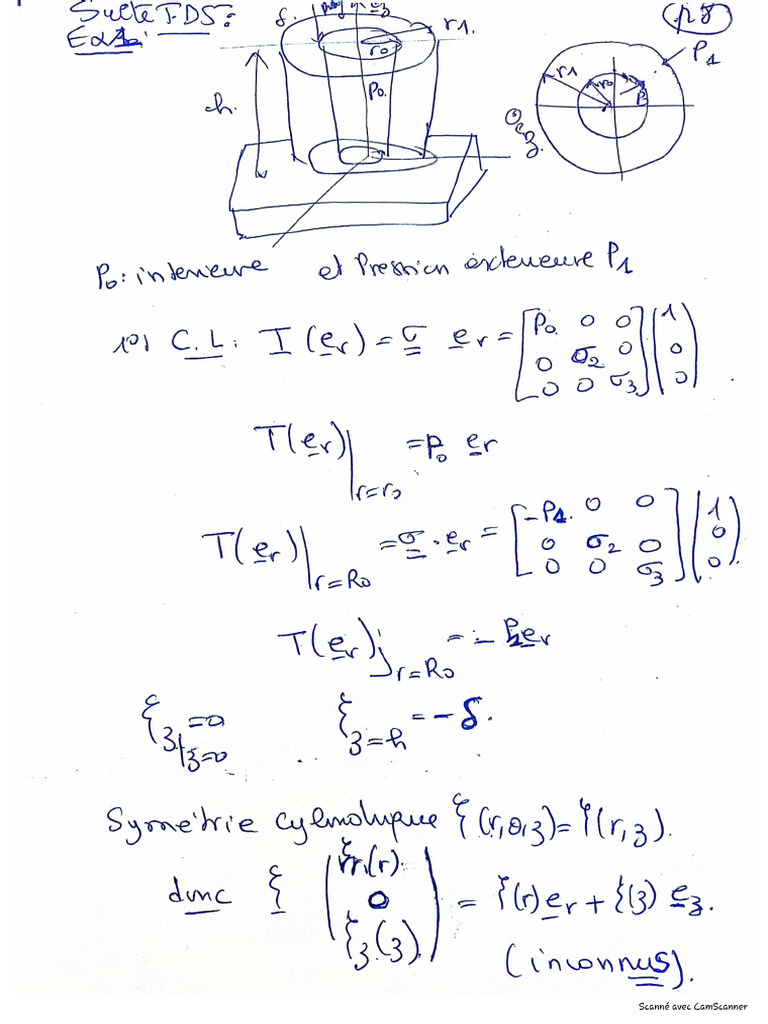 Suite T.DS:
(p8)
Ex1:
δ.
r1.
r0
P0.
h.
r1
r0
P1
P0: interieure et Pression éxterieure P1
1°) C.L: T(er) = σ er = [P0. 0 0 / 0 σ2 0 / 0 0 σ3] (1 0 0)
T(er)|r=r0 = P0 er
T(er)|r=R0 = σ · er = [-P1. 0 0 / 0 σ2 0 / 0 0 σ3] (1 0 0)
T(er)|r=R0 = - P1 er
ξ3|3=0 = 0 ξ3=h = -δ.
Symétrie cylindrique ξ(r,θ,3) = ξ(r,3).
donc ξ (ξr(r). 0 ξ3(3).) = ξ(r) er + ξ(3) e3.
(inconnus).
Scanné avec CamScanner